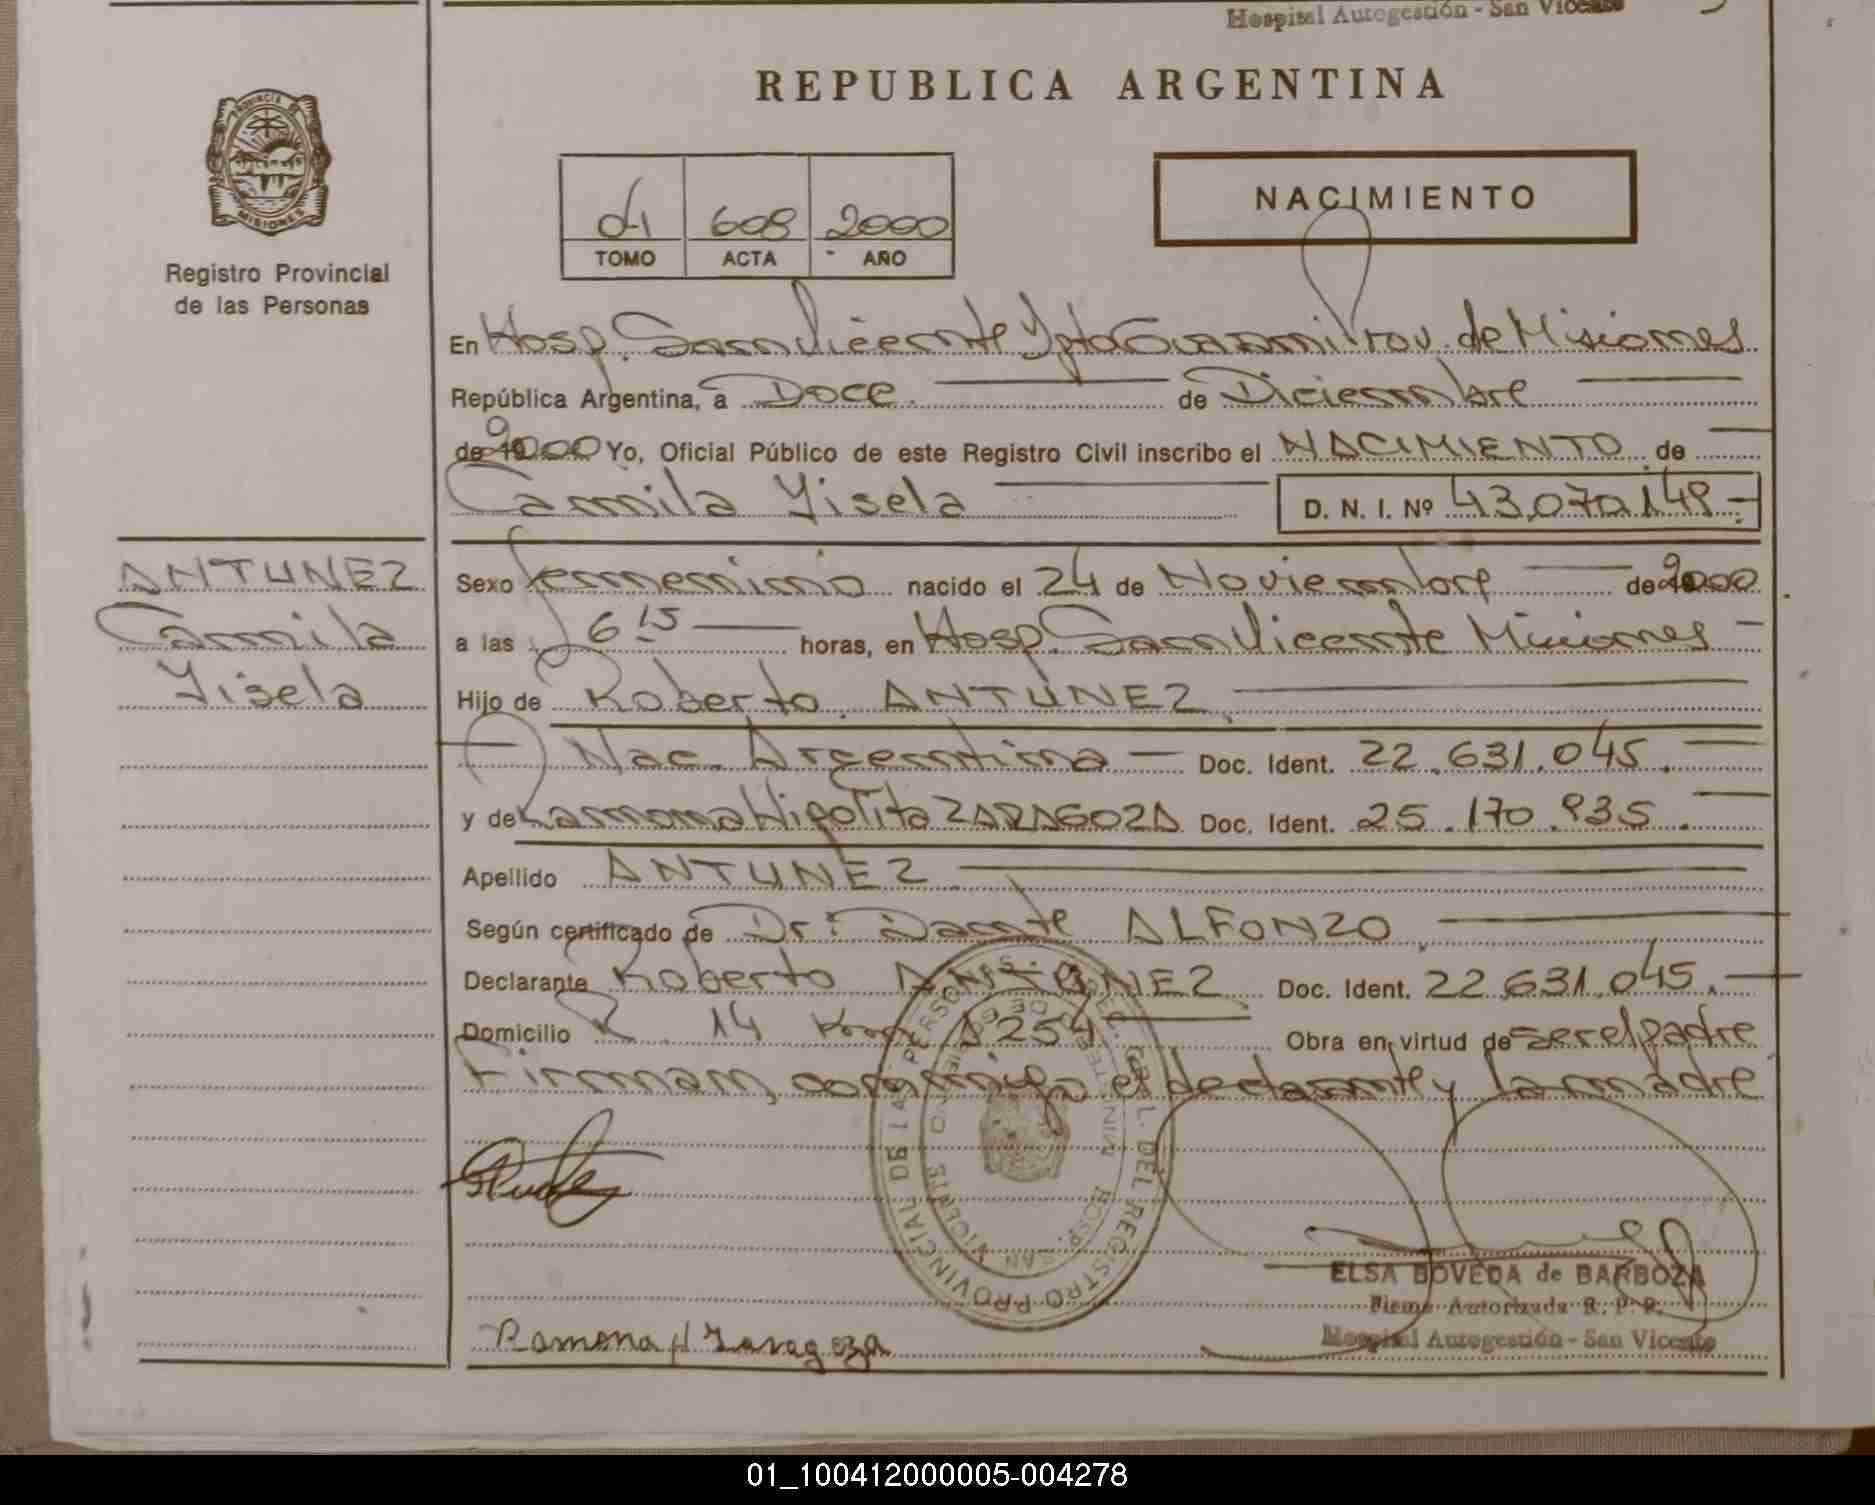 Hospital Autogestión - San Vicente
REPUBLICA ARGENTINA
PROVINCIA DE
MISIONES
Registro Provincial
de las Personas
608 2000
TOMO ACTA AÑO
NACIMIENTO
En Hosp. San Vicente Dpto Guaraní Prov. de Misiones
República Argentina, a Doce de Diciembre
de 2000 Yo, Oficial Público de este Registro Civil inscribo el NACIMIENTO de
Camila Yisela D. N. I. Nº 43.070.149.-
ANTUNEZ
Camila
Yisela
Sexo femenino nacido el 24 de Noviembre de 2000
a las 6 15 horas, en Hosp. San Vicente Misiones
Hijo de Roberto ANTUNEZ
Nac. Argentina - Doc. Ident. 22.631.045.
y de Ramona Hipolita ZARAGOZA Doc. Ident. 25.170.835.
Apellido ANTUNEZ
Según certificado de Dr: Dante ALFONZO
Declarante Roberto ANTUNEZ Doc. Ident. 22.631.045.
Domicilio R. 14 Km 1254 Obra en virtud de ser el padre
Firman, conmigo el declarante y la madre
DEL REGISTRO PROVINCIAL DE LAS PERSONAS
HOSP. SAN VICENTE
ELSA BOVEDA de BARBOZA
Firma Autorizada R. P. P.
Hospital Autogestión - San Vicente
Ramona H Zaragoza
01_100412000005-004278